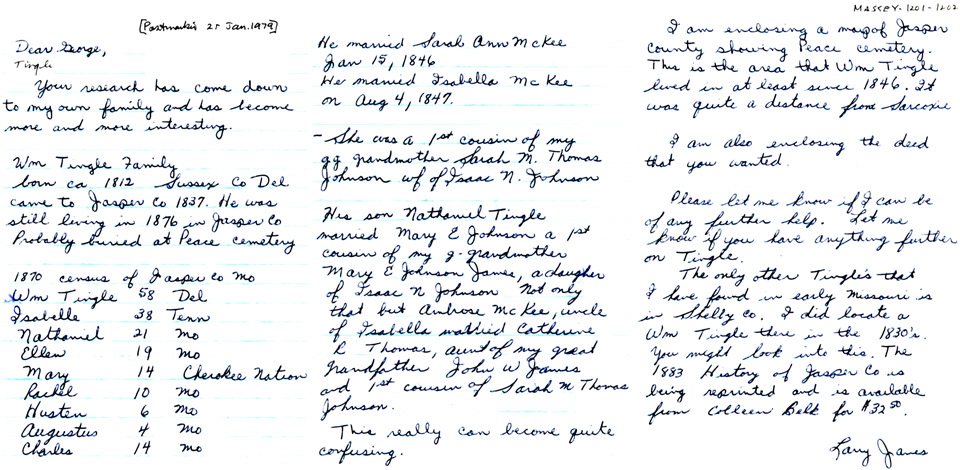 MASSEY-1201-1202
[Postmarkis 25 Jan. 1979]
Dear George,
Tingle
Your research has come down
to my own family and has become
more and more interesting.
Wm Tingle Family
born ca 1812 Sussex Co Del
came to Jasper Co 1837. He was
still living in 1876 in Jasper Co
Probably buried at Peace cemetery
1870 census of Jasper Co Mo
Wm Tingle 58 Del
Isabelle 38 Tenn
Nathaniel 21 Mo
Ellen 19 Mo
Mary 14 Cherokee Nation
Rachel 10 Mo
Husten 6 Mo
Augustus 4 Mo
Charles 14 Mo
He married Sarah Ann McKee
Jan 15, 1846
He married Isabella McKee
on Aug 4, 1847.
- She was a 1st cousin of my
gg grandmother Sarah M. Thomas
Johnson wf of Isaac N. Johnson
His son Nathaniel Tingle
married Mary E Johnson a 1st
cousin of my g-grandmother
Mary E Johnson James, a daughter
of Isaac N Johnson Not only
that but Ambrose McKee, uncle
of Isabella married Catherine
R Thomas, aunt of my great
grandfather John W James
and 1st cousin of Sarah M Thomas
Johnson.
This really can become quite
confusing.
I am enclosing a map of Jasper
county showing Peace cemetery.
This is the area that Wm Tingle
lived in at least since 1846. It
was quite a distance from Sarcoxie
I am also enclosing the deed
that you wanted.
Please let me know if I can be
of any further help. Let me
know if you have anything further
on Tingle.
The only other Tingles that
I have found in early Missouri is
in Shelby Co. I did locate a
Wm Tingle there in the 1830's.
You might look into this. The
1883 History of Jasper Co is
being reprinted and is available
from Colleen Belk for $32.50.
Larry James